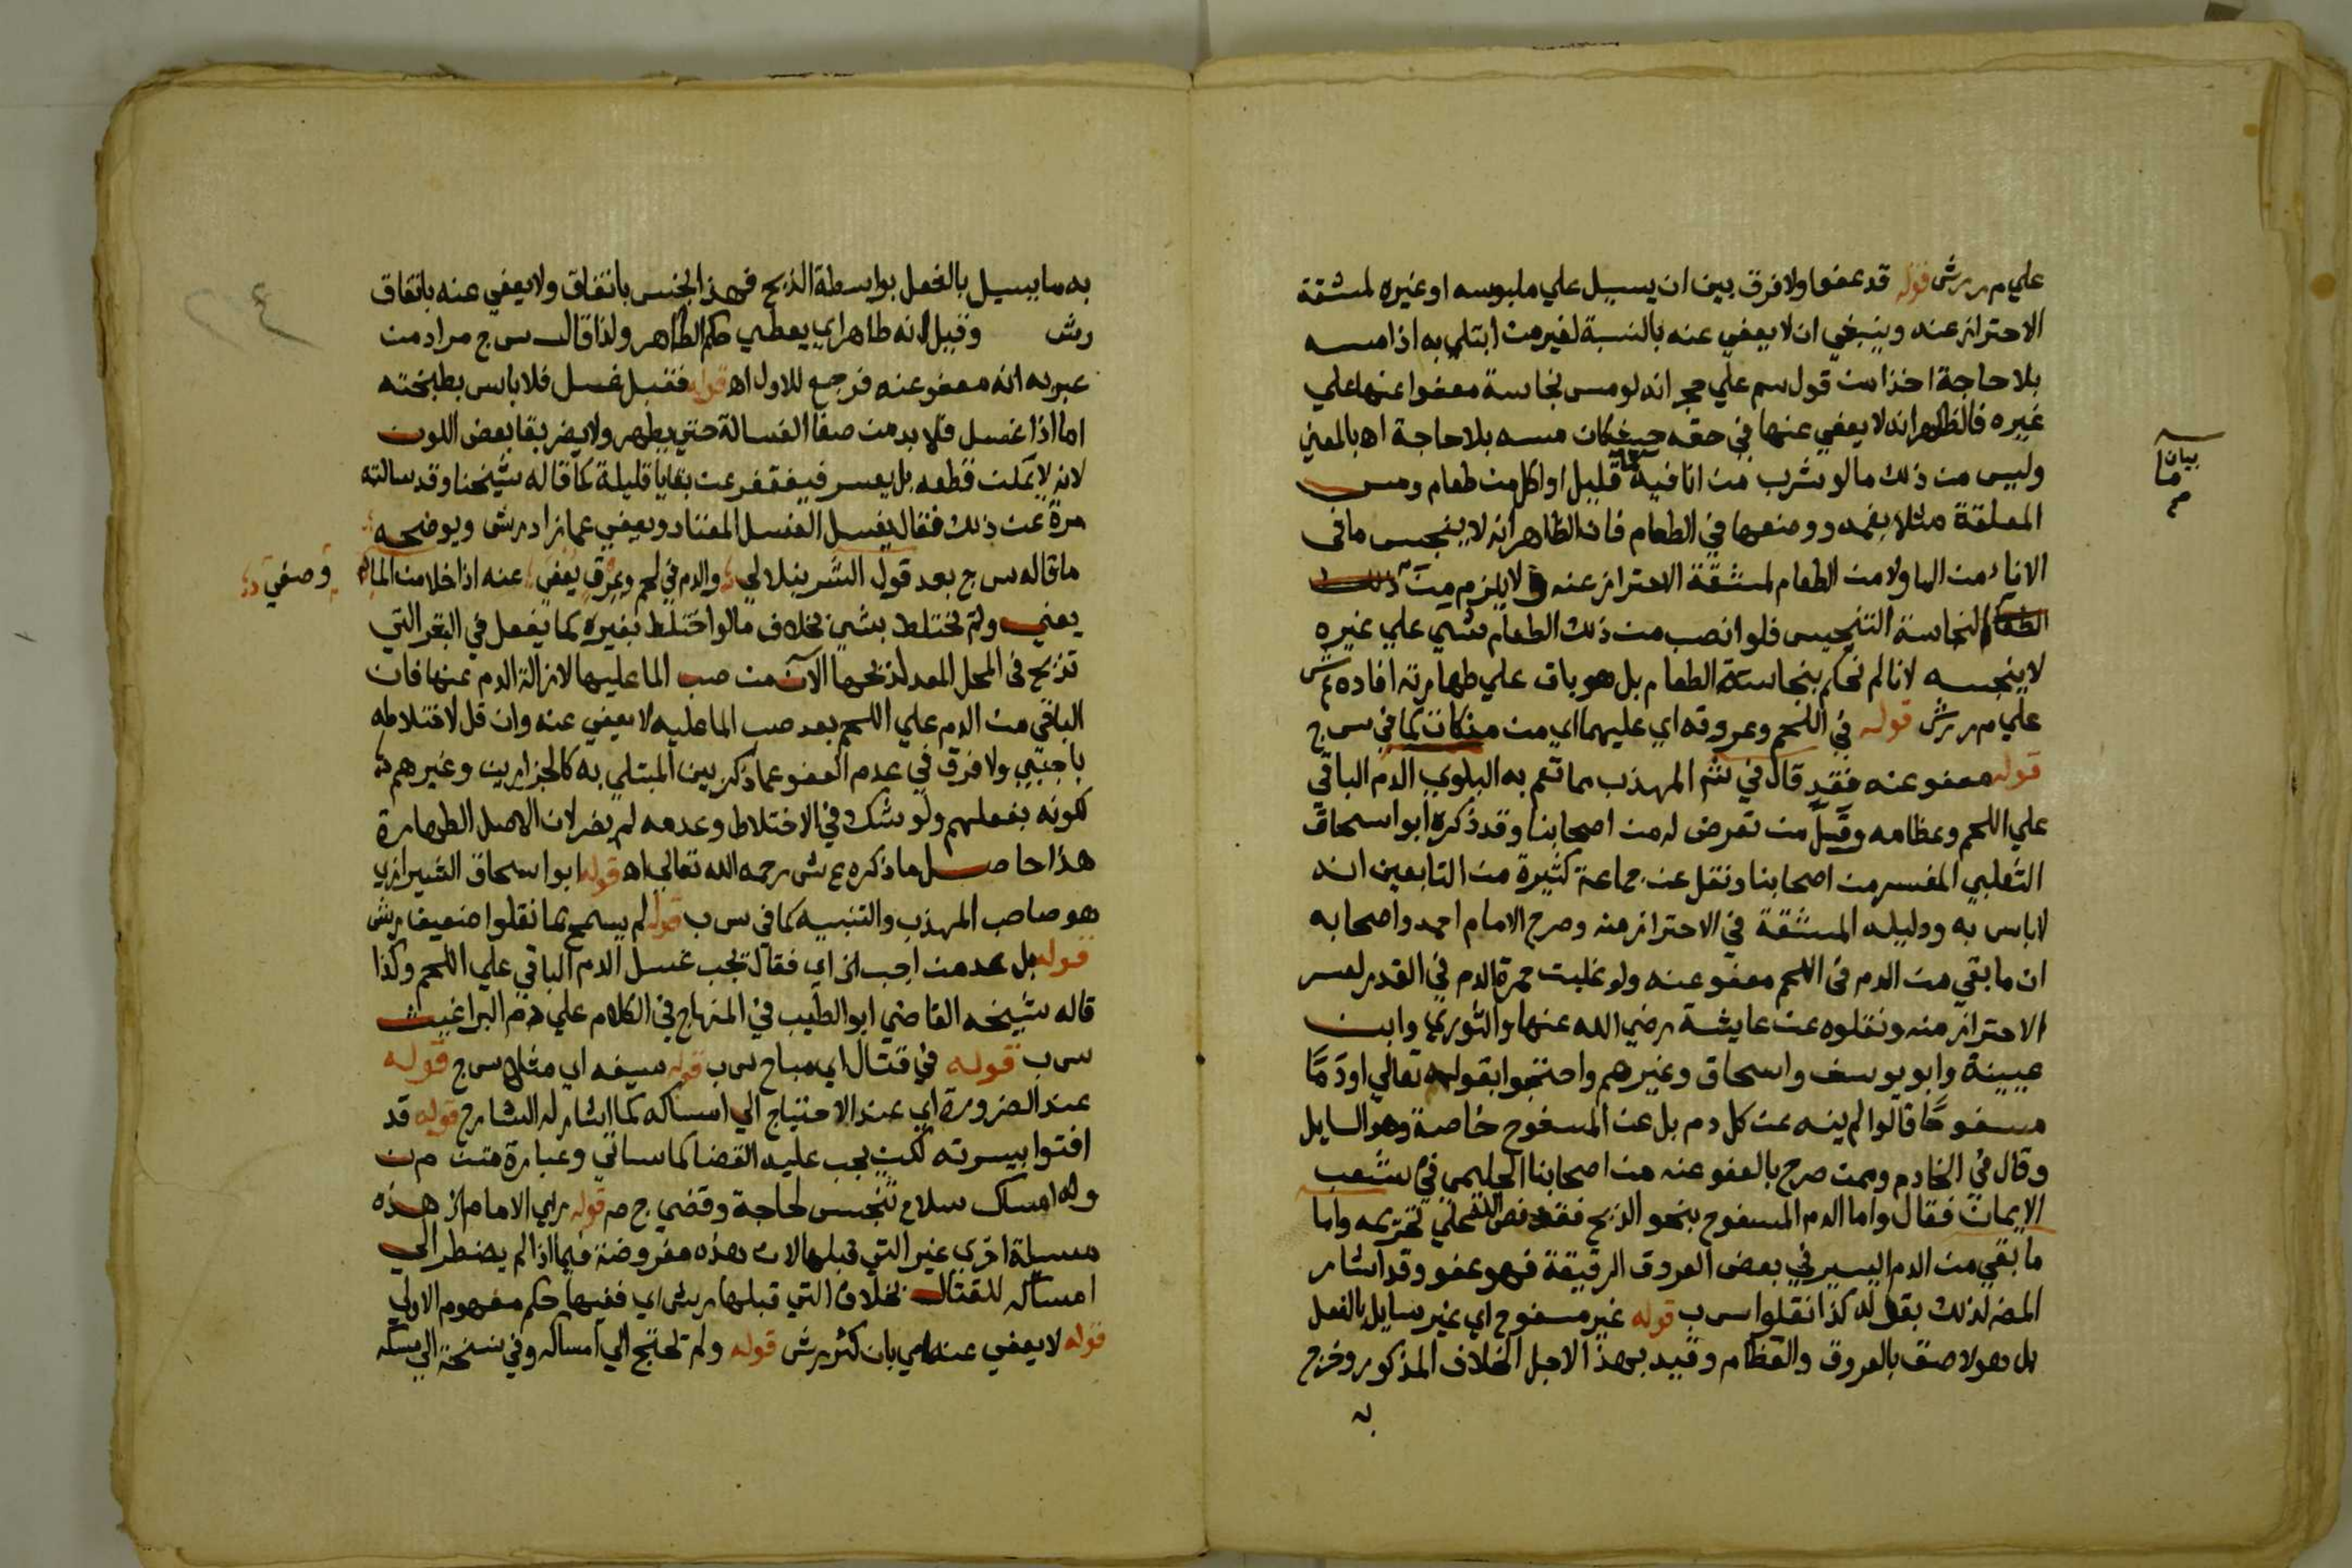 علي م ر رش قوله قد عفوا ولا فرق بين ان يسيل علي ملبوسه او غيره لمشقة
الاحتراز عنه وينبغي ان لا يعفي عنه بالنسبة لغير من ابتلي به اذا مسه
بلا حاجة اخذا من قول سم علي حجر انه لو مس نجاسة معفوا عنها علي
غيره فالظاهر انه لا يعفي عنها في حقه حيث كان مسه بلا حاجة اه بالمعني
وليس من ذلك ما لو شرب من انا فيه ماء قليل او اكل من طعام ومس
المعلقة مثلا بفمه ووضعها في الطعام فان الظاهر انه لا ينجس ما في
الاناء من الما ولا من الطعام لمشقة الاحتراز عنه ولا يلزم من
النجاسة التنجيس فلو انصب من ذلك الطعام شي علي غيره
لا ينجسه لانا لم نحكم بنجاسة الطعام بل هو باق علي طهارته افاده ع ش
علي م ر رش قوله في اللحم وعروقه اي عليهما اي من مذكاة كما في س ج
قوله معفو عنه فقد قال في شم المهذب مما تعم به البلوي الدم الباقي
علي اللحم وعظامه وقل من تعرض له من اصحابنا وقد ذكره ابو اسحاق
الثعلبي المفسر من اصحابنا ونقل عن جماعة كثيرة من التابعين انه
لا باس به ودليله المشقة في الاحتراز منه وصرح الامام احمد واصحابه
ان ما بقي من الدم في اللحم معفو عنه ولو غلبت حمرة الدم في القدر لعسر
الاحتراز منه ونقلوه عن عايشة رضي الله عنها والثوري وابن
عيينة وابو يوسف واسحاق وغيرهم واحتجوا بقوله تعالي او دمًا
مسفوحًا قالوا لم ينه عن كل دم بل عن المسفوح خاصة وهو السايل
وقال في الخادم وممن صرح بالعفو عنه من اصحابنا الحليمي في شعب
الايمان فقال واما الدم المسفوح بنحو الذبح فقد نص الله علي تحريمه واما
ما بقي من الدم اليسير في بعض العروق الرقيقة فهو عفو وقد اشار
المص لذلك بقوله كذا نقلوا س ب قوله غير مسفوح اي غير سايل بالفعل
بل هو لاصق بالعروق والعظام وقيد بهذا لاجل الخلاف المذكور وخرج
به
بيان
ما
به ما يسيل بالفعل بواسطة الذبح فهذا نجس باتفاق ولا يعفي عنه باتفاق
رش وقيل انه طاهر اي يعطي حكم الطاهر ولذا قال س ج مراد من
عبر به انه معفو عنه فرجع للاول اه قوله فقبل غسل فلا باس بطبخته
اما اذا غسل فلا بد من صفا الغسالة حتي يطهر ولا يضر بقا بعض اللون
لانه لا يمكن قطعه بل يعسر فيغتفر عن بقايا قليلة كما قاله شيخنا وقد سالته
مرة عن ذلك فقال يغسل الغسل المعتاد ويعفي عما زاد رش ويوضحه
ما قاله س ج بعد قول الشرنبلالي والدم في لحم وعرق يعفي عنه اذا خلا من الما
وصفي
يعني ولم تختلط بشي بخلاف ما لو اختلط بغيره كما يفعل في البقر التي
تذبح في المحل المعد لذبحها الآن من صب الما عليها لازالة الدم عنها فان
الباقي من الدم علي اللحم بعد صب الما عليه لا يعفي عنه وان قل لاختلاطه
باجنبي ولا فرق في عدم العفو عما ذكر بين المبتلي به كالجزارين وغيرهم
لكونه بفعلهم ولو شك في الاختلاط وعدمه لم يضر لان الاصل الطهارة
هذا حاصل ما ذكره ع ش رحمه الله تعالي اه قوله ابو اسحاق الشيرازي
هو صاحب المهذب والتنبيه كما في س ب قوله لم يسمح بما نقلوا ضعيف رش
قوله بل عد من اجب الخ اي فقال تجب غسل الدم الباقي علي اللحم وكذا
قاله شيخه القاضي ابو الطيب في المنهاج في الكلام علي دم البراغيث
س ب قوله في قتال اي مباح س ب قوله سيفه اي مثلا س ج قوله
عند الضرورة اي عند الاحتياج الي امساكه كما اشار له الشارح قوله قد
افتوا بيسرته لكن يجب عليه القضا كما ساتي وعبارة متن م ن
وله امساك سلاح تنجس لحاجة وقضي ج م قوله راي الامام الخ هذه
مسيلة اخري غير التي قبلها لان هذه مفروضة فيما اذا لم يضطر الي
امساكه للقتال بخلاف التي قبلها رش اي ففيها حكم مفهوم الاولي
قوله لا يعفي عنه اي بان كثر رش قوله ولم تحتج الي امساكه وفي نسخة الي مسكه
٢٤